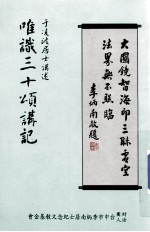 大圓鏡智海印三昧虛空
法界無不照臨
李炳南敬題
于凌波居士講述
唯識三十頌講記
財團法人台中市李炳南居士紀念文教基金會